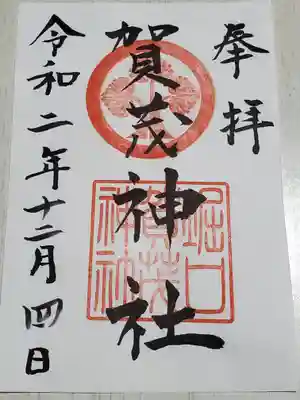 奉拝
賀茂神社
令和二年十二月四日
堀口
賀茂
神社